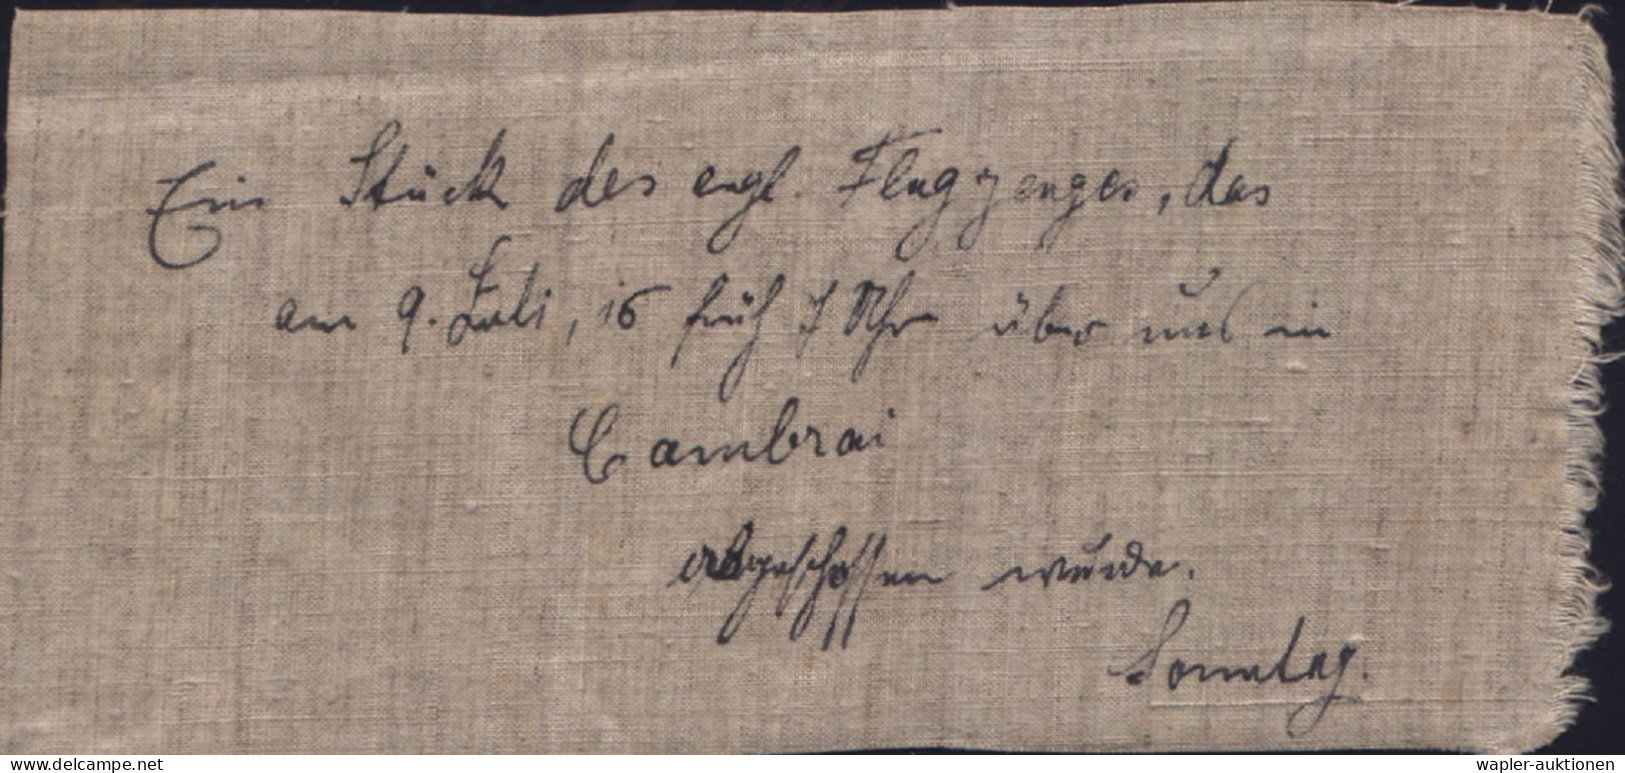 Ein Stück des engl. Flugzeuges, das
am 9. Juli, 16 früh 7 Uhr über uns in
Cambrai
abgeschossen wurde.
Sonntag.
www.delcampe.net
wapler-auktionen